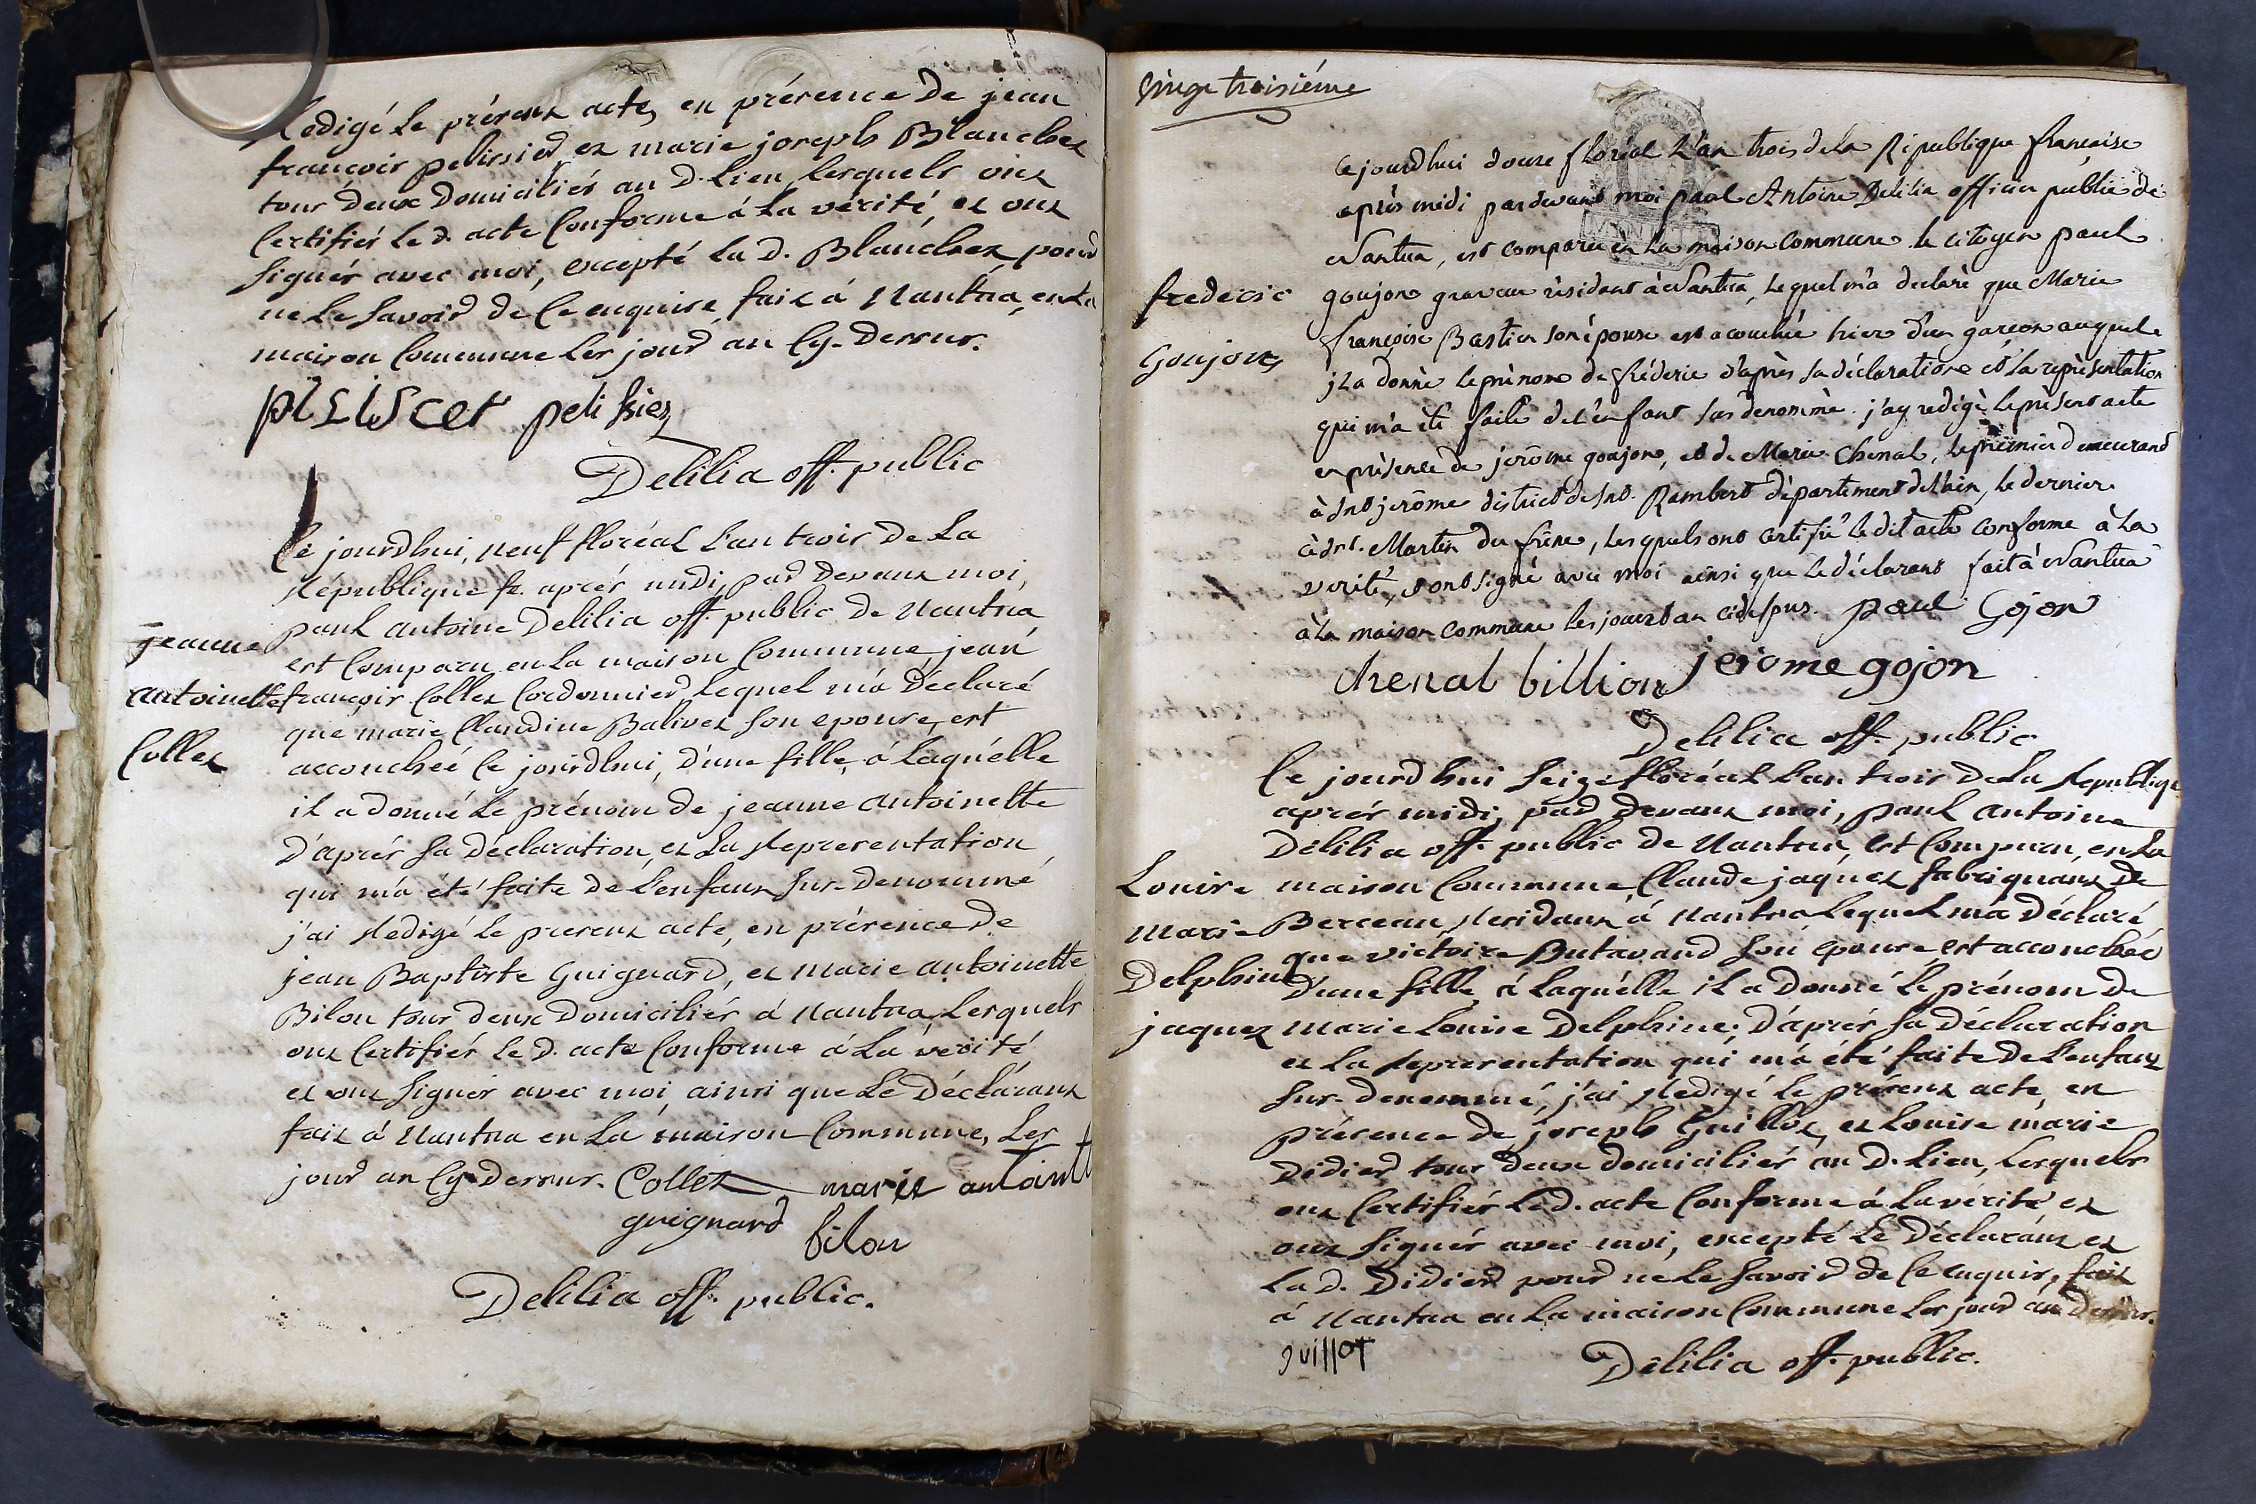 Redigé le présent acte, en présence de jean
francois pelissier et marie joseph Blanchet
tous deux Domiciliés au d. Lieu, Lesquels ont
Certifiés le d. acte Conforme á La vérité, et ont
signés avec moi, excepté la d. Blanchet, pour
ne Le savoir de Ce enquise, fait á Nantua, en La
maison Commune Les jour an Cy-dessus.
pelisier
Delilia off. public
Ce jourdhui, neuf floréal L'an trois de La
République fr. aprés midi, par devant moi,
paul antoine Delilia off. public de Nantua
jeanne
est Comparu en La maison Commune, jean
antoinette
françois Collet Cordonnier, Lequel m'a Déclaré
que marie Claudine Balivet son epouse, est
Collet
accouchée Ce jourdhui, d'une fille, á Laquelle
il a donné Le prénom de jeanne antoinette
D'aprés sa Déclaration, et La Representation
qui m'a été faite de L'enfant sus-denommé
j'ai Redigé le present acte, en présence de
jean Baptiste Guignard, et Marie antoinette
Bilon tous deux Domiciliés á Nantua, Lesquels
ont Certifiés le d. acte Conforme á La vérité,
et ont signés avec moi, ainsi que Le Déclarant
fait á Nantua en La maison Commune, Les
jour an Cy-dessus. Collet marie antoinett
guignard bilon
Delilia off. public.
vingt troisiéme
Cejourdhui douze floréal L'an trois de la République francaise
après midi pardevant moi paul Antoine Delilia officier public de
Nantua, est comparu en La maison Commune le citoyen paul
frederic
goujon graveur résidant à Nantua, Lequel m'a declaré que Marie
Goujon
françoise Bastier son épouse est acouchée hier d'un garcon auquel
jl a donné le prénom de fréderic d'après sa déclaration et la représentation
qui m'a été faite de l'enfant sus denommé. j'ay redigé le présent acte
en présence de jerôme goujon, et de Marie Chenal, le prémier demeurant
à snt jerôme district de snt. Rambert département de l'hin, le dernier
à snt. Martin du frêne, lesquels ont certifié ledit acte conforme à la
verité, et ont signé avec moi ainsi que le déclarant fait à Nantua
à La maison commune les jour et an cidessus. paul Gojon
Chenal billion jerome gojon
Delilia off. public
Ce jourdhui seize floréal L'an trois de La Republiqu
aprés midi, par devant moi, paul antoine
Délilia off. public de Nantua, est Comparu, en La
Louise
maison Commune Claude jaquet fabriquant de
Marie
Berceau, Residant á Nantua Lequel m'a Déclaré
que victoire Butavand son épouse est accouchée
Delphine
D'une fille, á Laquélle il a donné Le prénom de
jaquet
Marie Louise Delphine. D'aprés sa Déclaration
et La representation qui m'a été faite de L'enfant
sus-denommé, j'ai Redigé le présent acte, en
présence de joseph Guillot, et Louise marie
Didier tous deux domiciliés au d. Lieu, Lesquels
ont Certifiés Le d. acte Conforme á La vérité et
ont signés avec moi, excepté Le Déclarant et
La d. Didier pour ne Le savoir de Ce enquis, fait
á Nantua en La maison Commune Les jour an Dessus.
guillot
Delilia off. public.